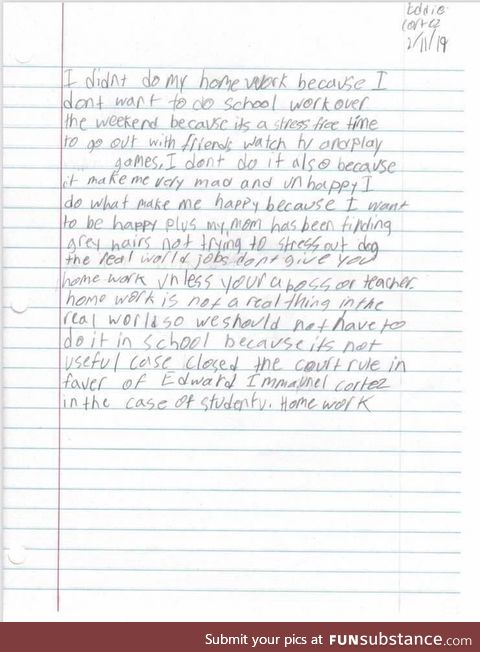 Eddie
cortez
2/11/19
I didnt do my home work because I
dont want to do school work over
the weekend because its a stress free time
to go out with friends watch tv and play
games, I dont do it also because
it make me very mad and unhappy I
do what make me happy because I want
to be happy plus my mom has been finding
grey hairs not trying to stress out dog
the real world jobs dont give you
home work unless your a boss or teacher.
home work is not a real thing in the
real world so we should not have to
do it in school because its not
useful case closed the court rule in
faver of Edward Immaunel cortez
in the case of student v. Home work
Submit your pics at FUNsubstance.com